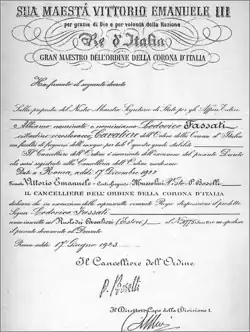 SUA MAESTÀ VITTORIO EMANUELE III
per grazia di Dio e per volontà della Nazione
Re d'Italia
GRAN MAESTRO DELL'ORDINE DELLA CORONA D'ITALIA
Ha firmato il seguente decreto
Sulla proposta del Nostro Ministro Segretario di Stato per gli Affari Esteri
Abbiamo nominato e nominiamo Lodovico Fossati
Cavaliere dell'Ordine della Corona d'Italia
con facoltà di fregiarsi delle insegne per tale equestre grado stabilite
Il Cancelliere dell'Ordine è incaricato dell'esecuzione del presente Decreto
che sarà registrato alla Cancelleria dell'Ordine medesimo
Dato a Roma, addì 17 Dicembre 1922
Vittorio Emanuele Mussolini P. Boselli
IL CANCELLIERE DELL'ORDINE DELLA CORONA D'ITALIA
dichiara che in esecuzione delle Sovrane disposizioni il predetto
Signor Lodovico Fossati
(Estero) al N.
il presente documento
Roma addì 17 Giugno 1923
Il Cancelliere dell'Ordine
P. Boselli
Il Direttore Capo della Divisione I